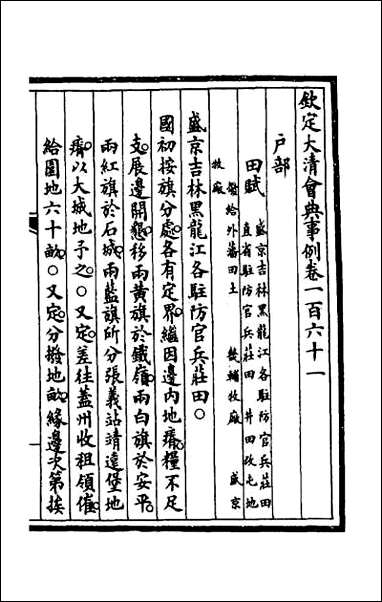 欽定大清會典事例卷一百六十一
户部
田賦
盛京吉林黑龍江各駐防官兵莊田
直省駐防官兵莊田 井田改屯地
撥給外藩田土 畿輔牧廠 盛京
牧廠
盛京吉林黑龍江各駐防官兵莊田○
國初按旗分處各有定界繼因邊内地瘠糧不足
支展邊開墾移兩黄旗於鐵嶺兩白旗於安平
兩紅旗於石城兩藍旗所分張義站靖遠堡地
瘠以大城地予之○又定差往蓋州收租領催
給園地六十畝○又定分撥地畝緣邊次第挨